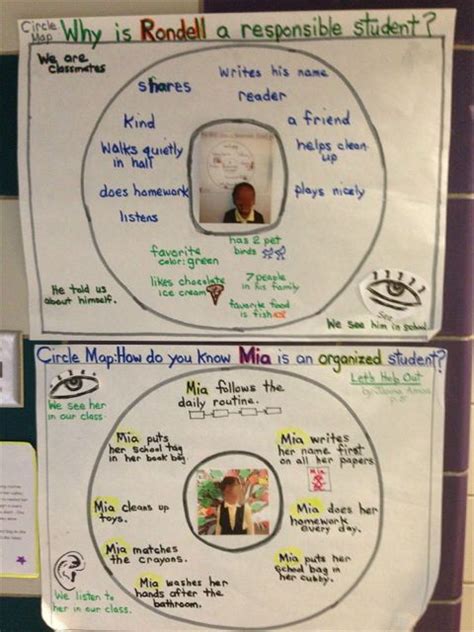 Circle Map Why is Rondell a responsible student?
We are
classmates
shares
Writes his name
reader
Kind
a friend
Walks quietly
in hall
helps clean
up
does homework
plays nicely
listens
favorite
color: green
has 2 pet
birds
likes chocolate
ice cream
7 people
in his family
favorite food
is fish
He told us
about himself.
See
We see him in school.
Circle Map: How do you know Mia is an organized student?
Let's Help Out
We see her
in our class.
Mia follows the
daily routine.
Mia puts
her school tag
in her book bag
Mia writes
her name first
on all her papers
Mia
Mia cleans up
toys.
Mia does her
homework
every day.
Mia matches
the crayons.
Mia puts her
school bag in
her cubby.
Mia washes her
hands after the
bathroom.
We listen to
her in our class.